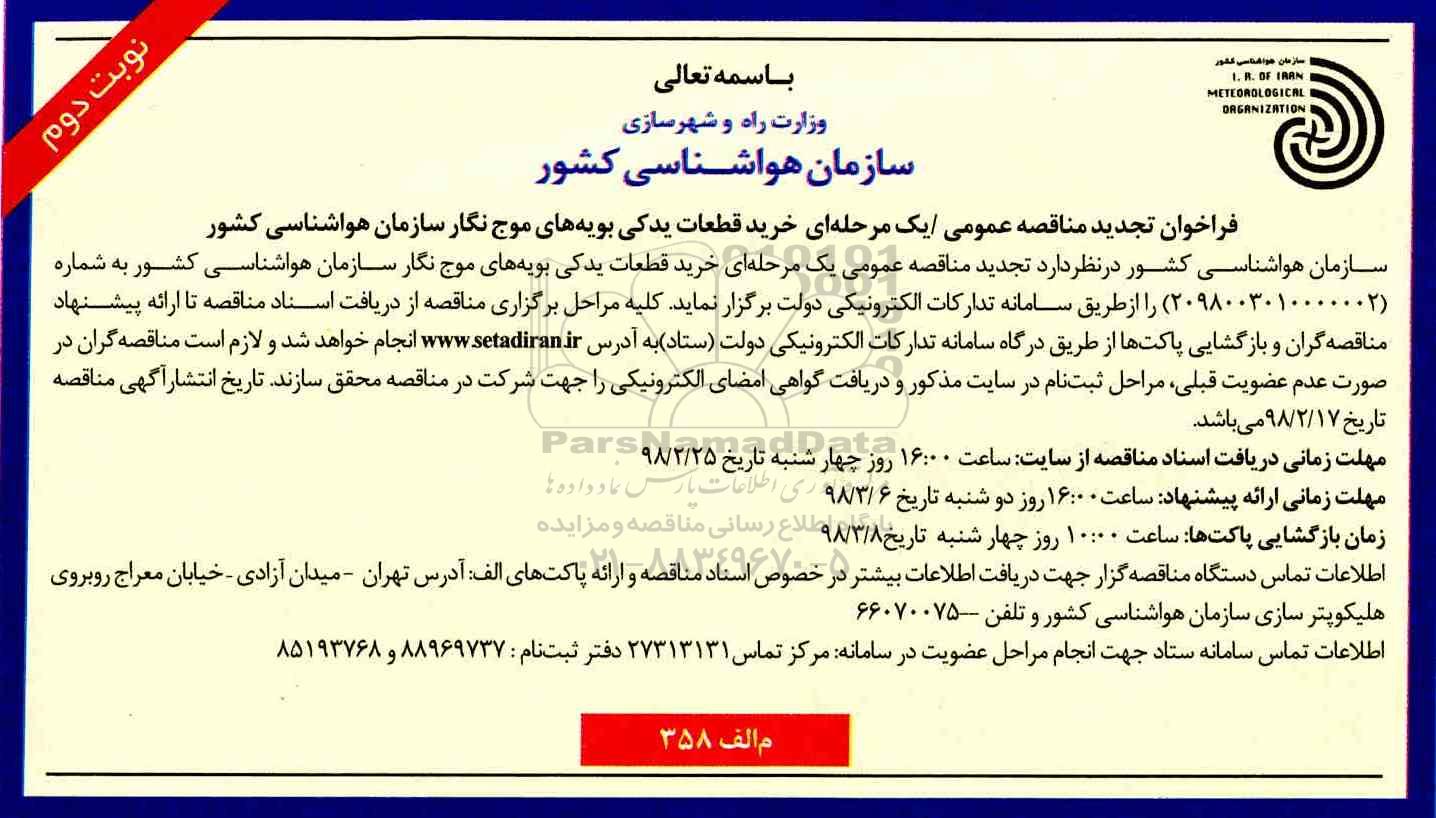 نوبت دوم
سازمان هواشناسی کشور
I. R. OF IRAN
METEOROLOGICAL
ORGANIZATION
باسمه تعالی
وزارت راه و شهرسازی
سازمان هواشناسی کشور
فراخوان تجدید مناقصه عمومی /یک مرحله‌ای خرید قطعات یدکی بویه‌های موج نگار سازمان هواشناسی کشور
سازمان هواشناسی کشور درنظردارد تجدید مناقصه عمومی یک مرحله‌ای خرید قطعات یدکی بویه‌های موج نگار سازمان هواشناسی کشور به شماره
(۲۰۹۸۰۰۳۰۱۰۰۰۰۰۰۲) را ازطریق سامانه تدارکات الکترونیکی دولت برگزار نماید. کلیه مراحل برگزاری مناقصه از دریافت اسناد مناقصه تا ارائه پیشنهاد
مناقصه‌گران و بازگشایی پاکت‌ها از طریق درگاه سامانه تدارکات الکترونیکی دولت (ستاد)به آدرس www.setadiran.ir انجام خواهد شد و لازم است مناقصه‌گران در
صورت عدم عضویت قبلی، مراحل ثبت‌نام در سایت مذکور و دریافت گواهی امضای الکترونیکی را جهت شرکت در مناقصه محقق سازند. تاریخ انتشارآگهی مناقصه
تاریخ ۹۸/۲/۱۷می‌باشد.
مهلت زمانی دریافت اسناد مناقصه از سایت: ساعت ۱۶:۰۰ روز چهار شنبه تاریخ ۹۸/۲/۲۵
مهلت زمانی ارائه پیشنهاد: ساعت۱۶:۰۰روز دو شنبه تاریخ ۹۸/۳/۶
زمان بازگشایی پاکت‌ها: ساعت ۱۰:۰۰ روز چهار شنبه تاریخ۹۸/۳/۸
اطلاعات تماس دستگاه مناقصه‌گزار جهت دریافت اطلاعات بیشتر در خصوص اسناد مناقصه و ارائه پاکت‌های الف: آدرس تهران - میدان آزادی - خیابان معراج روبروی
هلیکوپتر سازی سازمان هواشناسی کشور و تلفن --۶۶۰۷۰۰۷۵
اطلاعات تماس سامانه ستاد جهت انجام مراحل عضویت در سامانه: مرکز تماس۲۷۳۱۳۱۳۱ دفتر ثبت‌نام : ۸۸۹۶۹۷۳۷ و ۸۵۱۹۳۷۶۸
م‌الف ۳۵۸
ParsNamadData
پایگاه اطلاع رسانی مناقصه و مزایده
۰۲۱-۸۸۳۴۹۶۷۰-۵